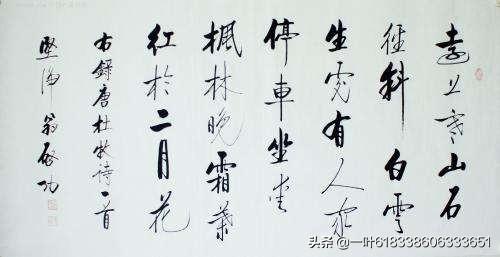 遠上寒山石
徑斜白雲
生處有人家
停車坐愛
楓林晚霜葉
紅於二月花
右錄唐杜牧詩一首
堅淨翁啟功
头条 @一叶618338606333651